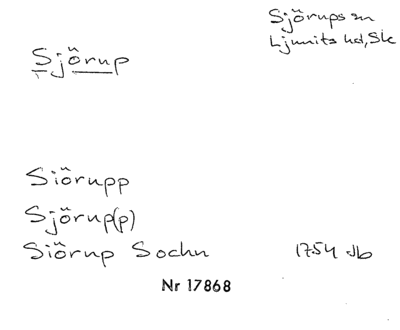 Sjörups sn
Ljunits hd, Sk
Sjörup
Siörupp
Sjörup(p)
Siörup Sochn 1754 Jb
Nr 17868